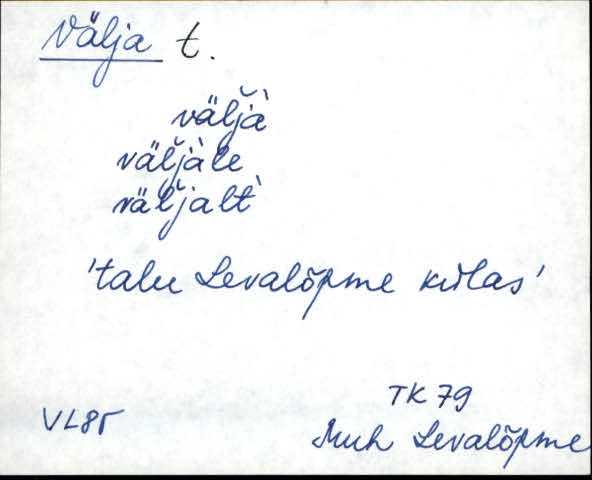 Välja t.
välja`
väljale
väljalt`
'talu Levalõpme külas'
TK 79
VL85
Muh Levalõpme